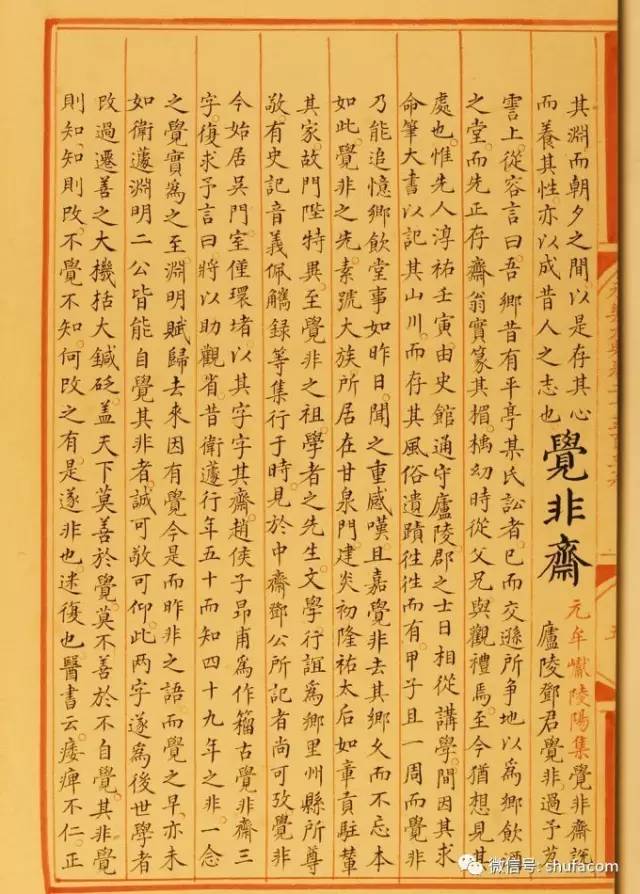 其淵而朝夕之間以是存其心
而養其性亦以成昔人之志也
覺非齋
元牟巘陵陽集覺非齋説
廬陵鄧君覺非過予苕
霅上從容言曰吾鄉昔有平亭某氏訟者已而交遜所争地以爲鄉飲酒
之堂而先正存齋翁實篆其楣橋幼時從父兄與觀禮焉至今猶想見其
處也惟先人淳祐壬寅由史館通守廬陵郡之士日相從講學間因其求
命筆大書以記其山川而存其風俗遺蹟往往而有甲子且一周而覺非
乃能追憶鄉飲堂事如昨日聞之重感嘆且嘉覺非去其鄉久而不忘本
如此覺非之先素號大族所居在甘泉門建炎初隆祐太后如章貢駐輦
其家故門陛特異至覺非之祖學者之先生文學行誼爲鄉里州縣所尊
敬有史記音義佩觿録等集行于時見於中齋鄧公所記者尚可攷覺非
今始居吳門室僅環堵以其字字其齋趙侯子昂甫爲作籀古覺非齋三
字復求予言曰將以助觀省昔衛蘧行年五十而知四十九年之非一念
之覺實爲之至淵明賦歸去來因有覺今是而昨非之語而覺之早亦未
如衛蘧淵明二公皆能自覺其非者誠可敬可仰此两字遂爲後世學者
改過遷善之大機括大鍼砭盖天下莫善於覺莫不善於不自覺其非覺
則知知則改不覺不知何改之有是遂非也迷復也醫書云痿痺不仁正
微信号: shufacom